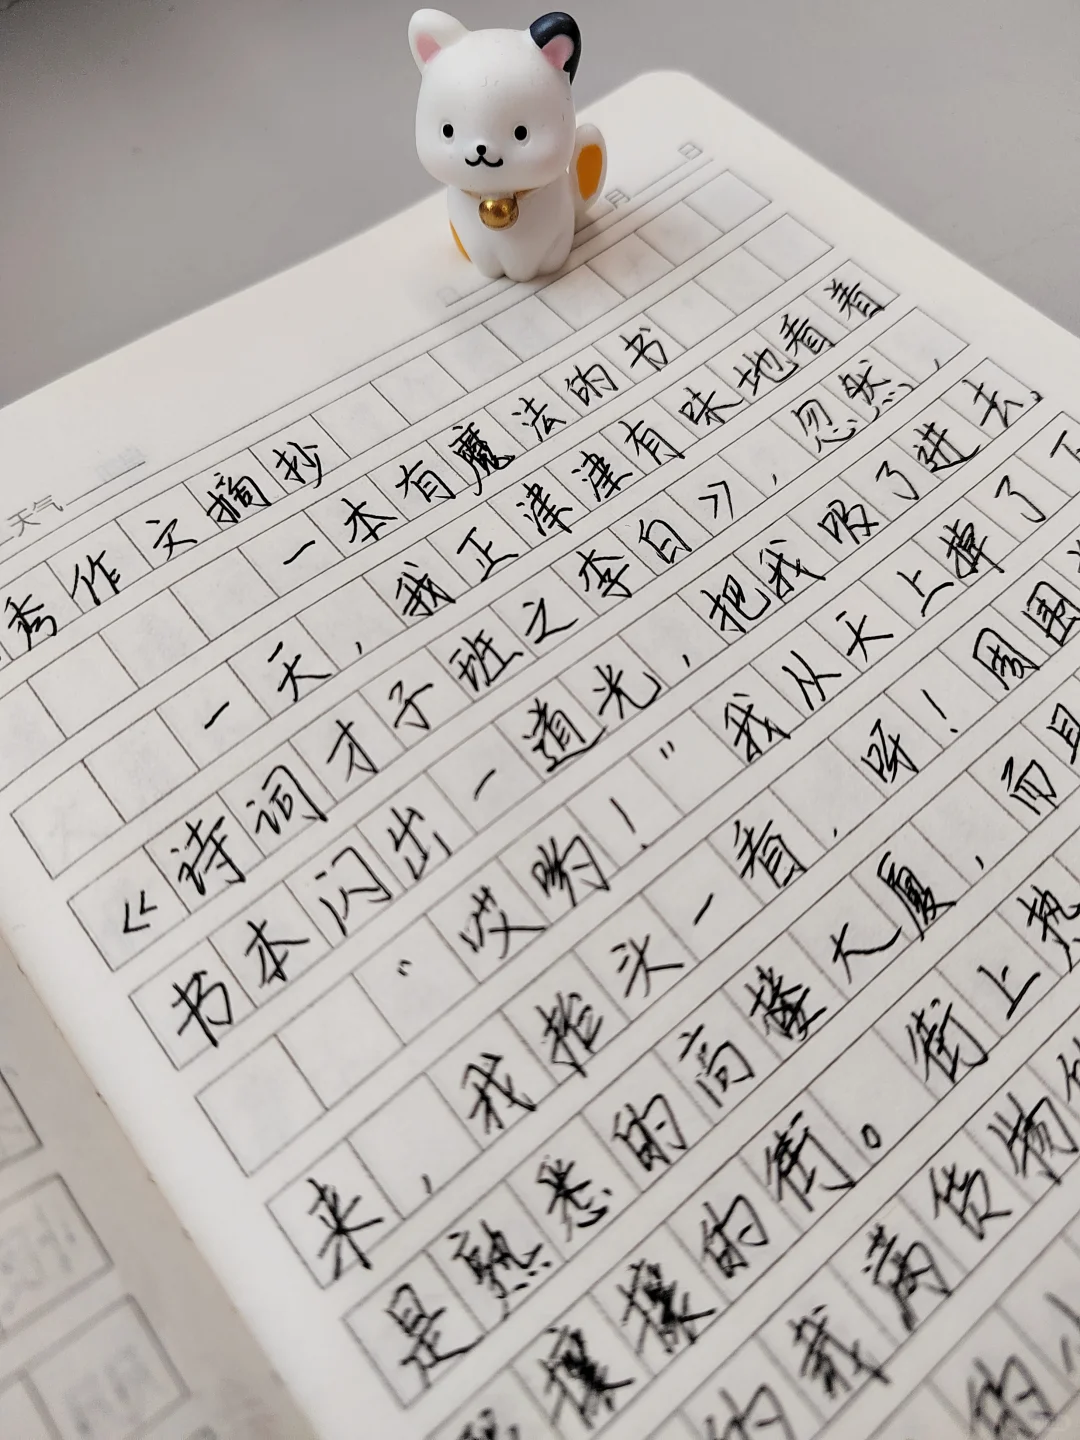 天气
秀作文摘抄
一本有魔法的书
一天，我正津津有味地看着
《诗词才子班之李白》，忽然，
书本闪出一道光，把我吸了进去。
“哎哟！”我从天上掉了下
来，我抬头一看，呀！周围
是熟悉的高楼大厦，而且
熙攘攘的街。街上热
的载满货物
的小